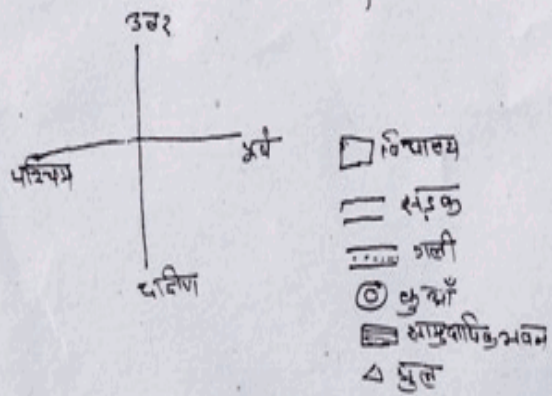 उत्तर
पश्चिम
पूर्व
दक्षिण
विद्यालय
सड़क
गली
कुआँ
सामुदायिक भवन
पुल